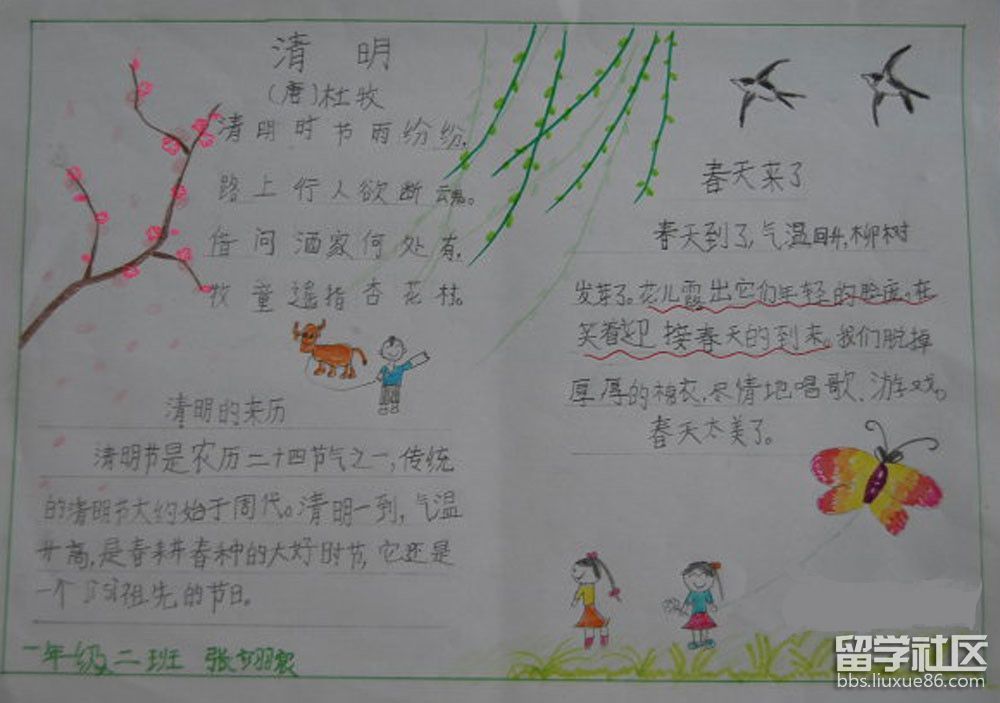 清明
(唐)杜牧
清明时节雨纷纷,
路上行人欲断魂。
借问酒家何处有,
牧童遥指杏花村。
清明的来历
清明节是农历二十四节气之一,传统
的清明节大约始于周代。清明一到,气温
升高,是春耕春种的大好时节,它还是
一个祖先的节日。
一年级二班 张
春天来了
春天到了,气温回升,柳树
发芽了。花儿露出它们年轻的脸庞。在
笑着迎接春天的到来。我们脱掉
厚厚的棉衣,尽情地唱歌、游戏。
春天太美了。
留学社区
bbs.liuxue86.com